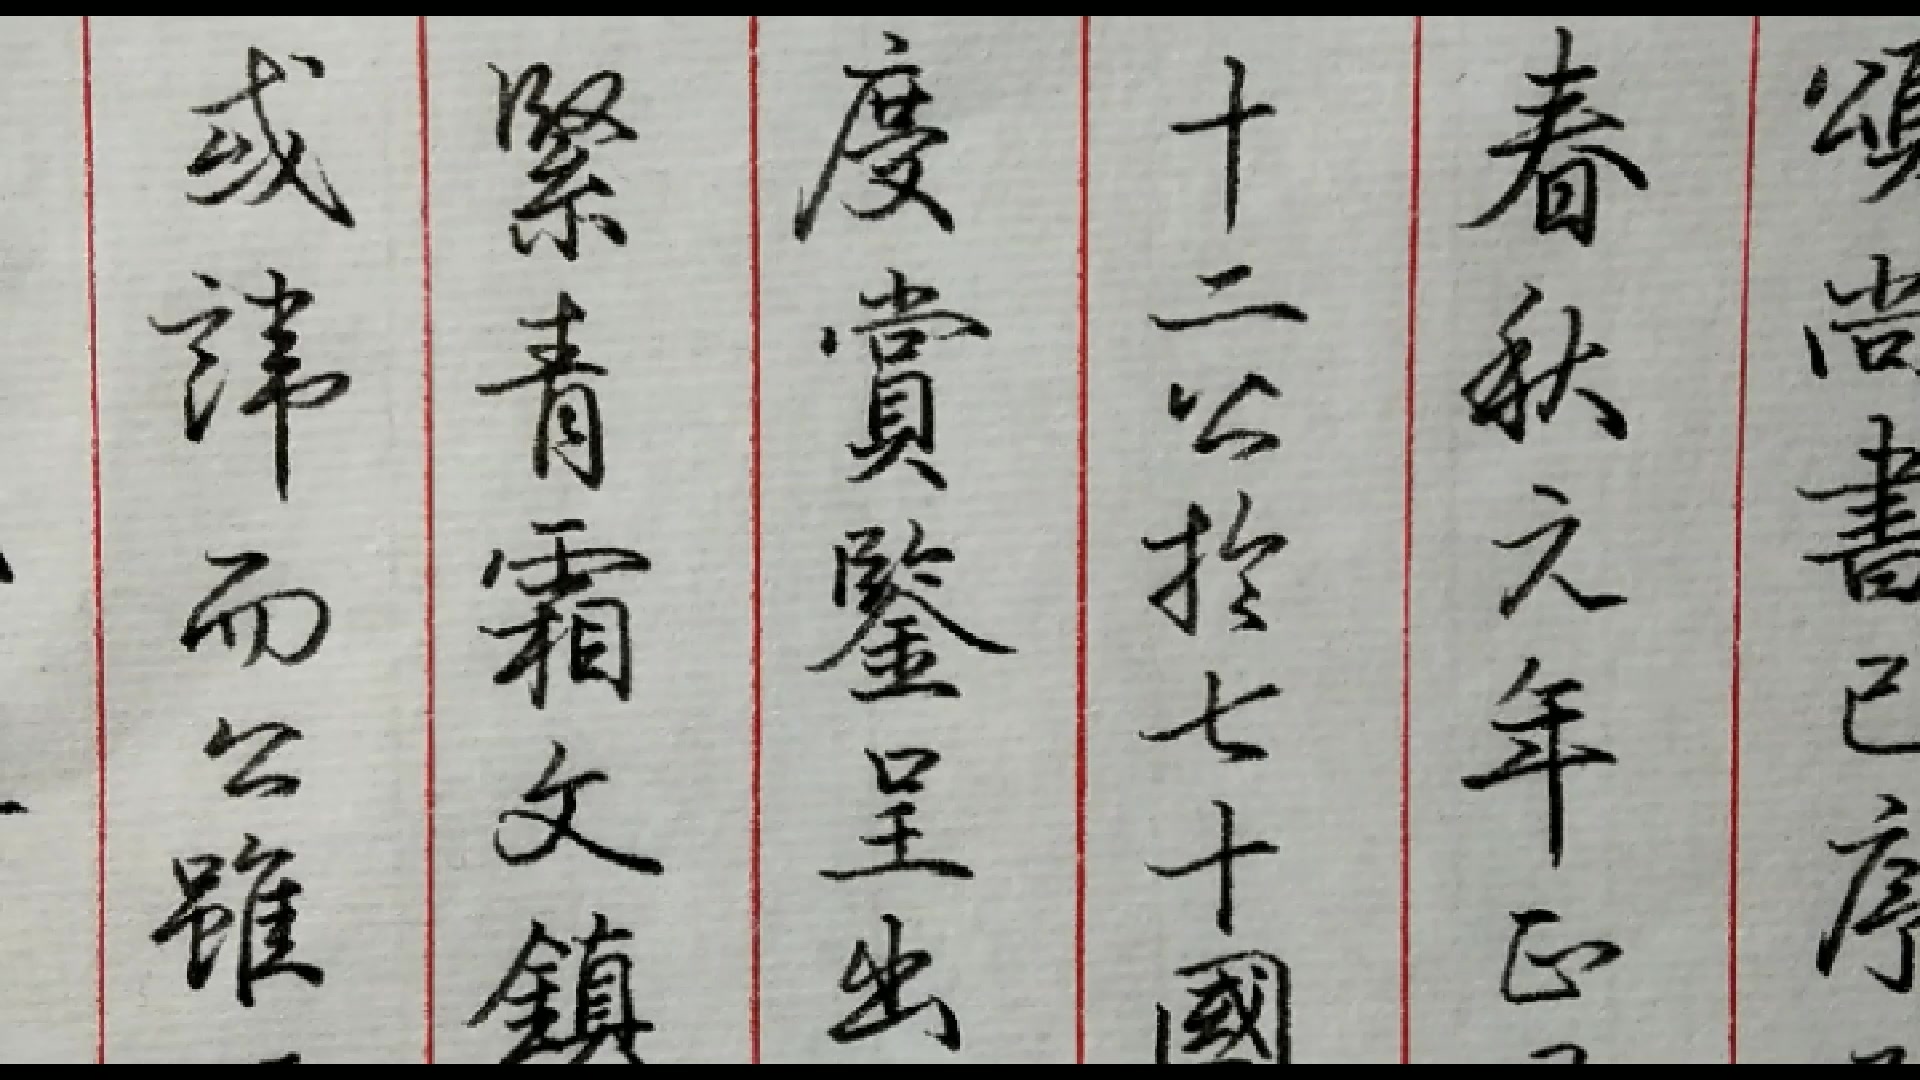 頌尚書已序
春秋元年正
十二公於七十國
慶賞鑒呈出
緊青霜文鎮
或諱而公雖